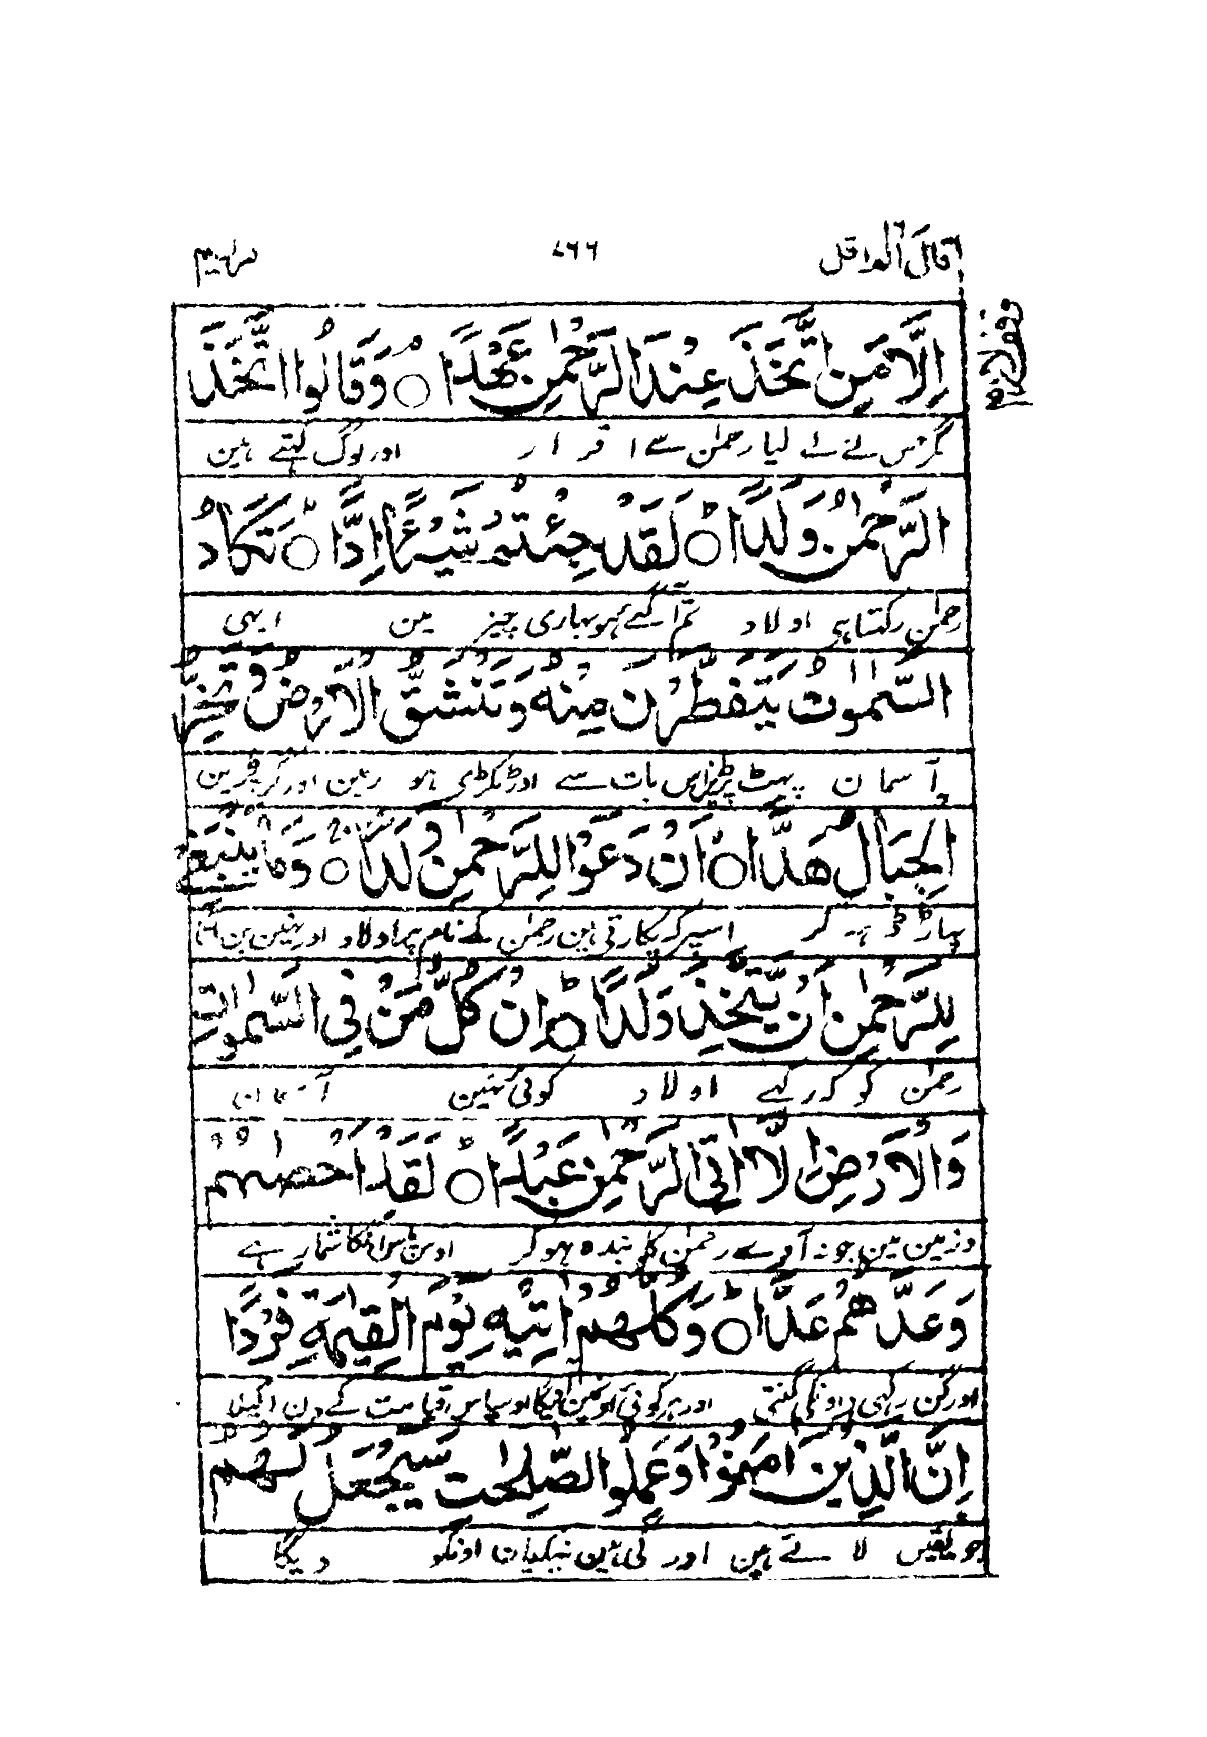 قال الم اقل ۷۶۶ مریم
وقف لازم
اِلَّا مَنِ اتَّخَذَ عِنْدَ الرَّحْمٰنِ عَهْدًا ۘ وَقَالُوا اتَّخَذَ
مگر جس نے لے لیا رحمٰن سے اقرار اور لوگ کہتے ہین
الرَّحْمٰنُ وَلَدًا ؕ لَقَدْ جِئْتُمْ شَيْئًا اِدًّا ۙ تَكَادُ
رحمٰن رکھتا ہی اولاد تم آ گئے ہو بھاری چیز مین ابھی
السَّمٰوٰتُ يَتَفَطَّرْنَ مِنْهُ وَتَنْشَقُّ الْاَرْضُ وَتَخِرُّ
آسمان پھٹ پڑین اس بات سے اور ٹکڑی ہو زمین اور گر پڑین
الْجِبَالُ هَدًّا ۙ اَنْ دَعَوْا لِلرَّحْمٰنِ وَلَدًا ۚ وَمَا يَنْۢبَغِيْ
پہاڑ ڈہ کر اسپر کہ پکارتی ہین رحمٰن کے نام پر اولاد اور نہین بن آتا
لِلرَّحْمٰنِ اَنْ يَّتَّخِذَ وَلَدًا ؕ اِنْ كُلُّ مَنْ فِي السَّمٰوٰتِ
رحمٰن کو کہ رکہے اولاد کوئی نہین آسمان
وَالْاَرْضِ اِلَّاۤ اٰتِي الرَّحْمٰنِ عَبْدًا ؕ لَقَدْ اَحْصٰىهُمْ
و زمین مین جو نہ آوے رحمٰن کا بندہ ہوکر اوس پاس انکا شمار ہے
وَعَدَّهُمْ عَدًّا ؕ وَكُلُّهُمْ اٰتِيْهِ يَوْمَ الْقِيٰمَةِ فَرْدًا
اور گن رکہی اونکی گنتی اور ہر کوئی اوس پاس قیامت کے دن اکیلا
اِنَّ الَّذِيْنَ اٰمَنُوْا وَعَمِلُوا الصّٰلِحٰتِ سَيَجْعَلُ لَهُمُ
جو یقین لائے ہین اور کی ہین نیکیان اونکو دیگا